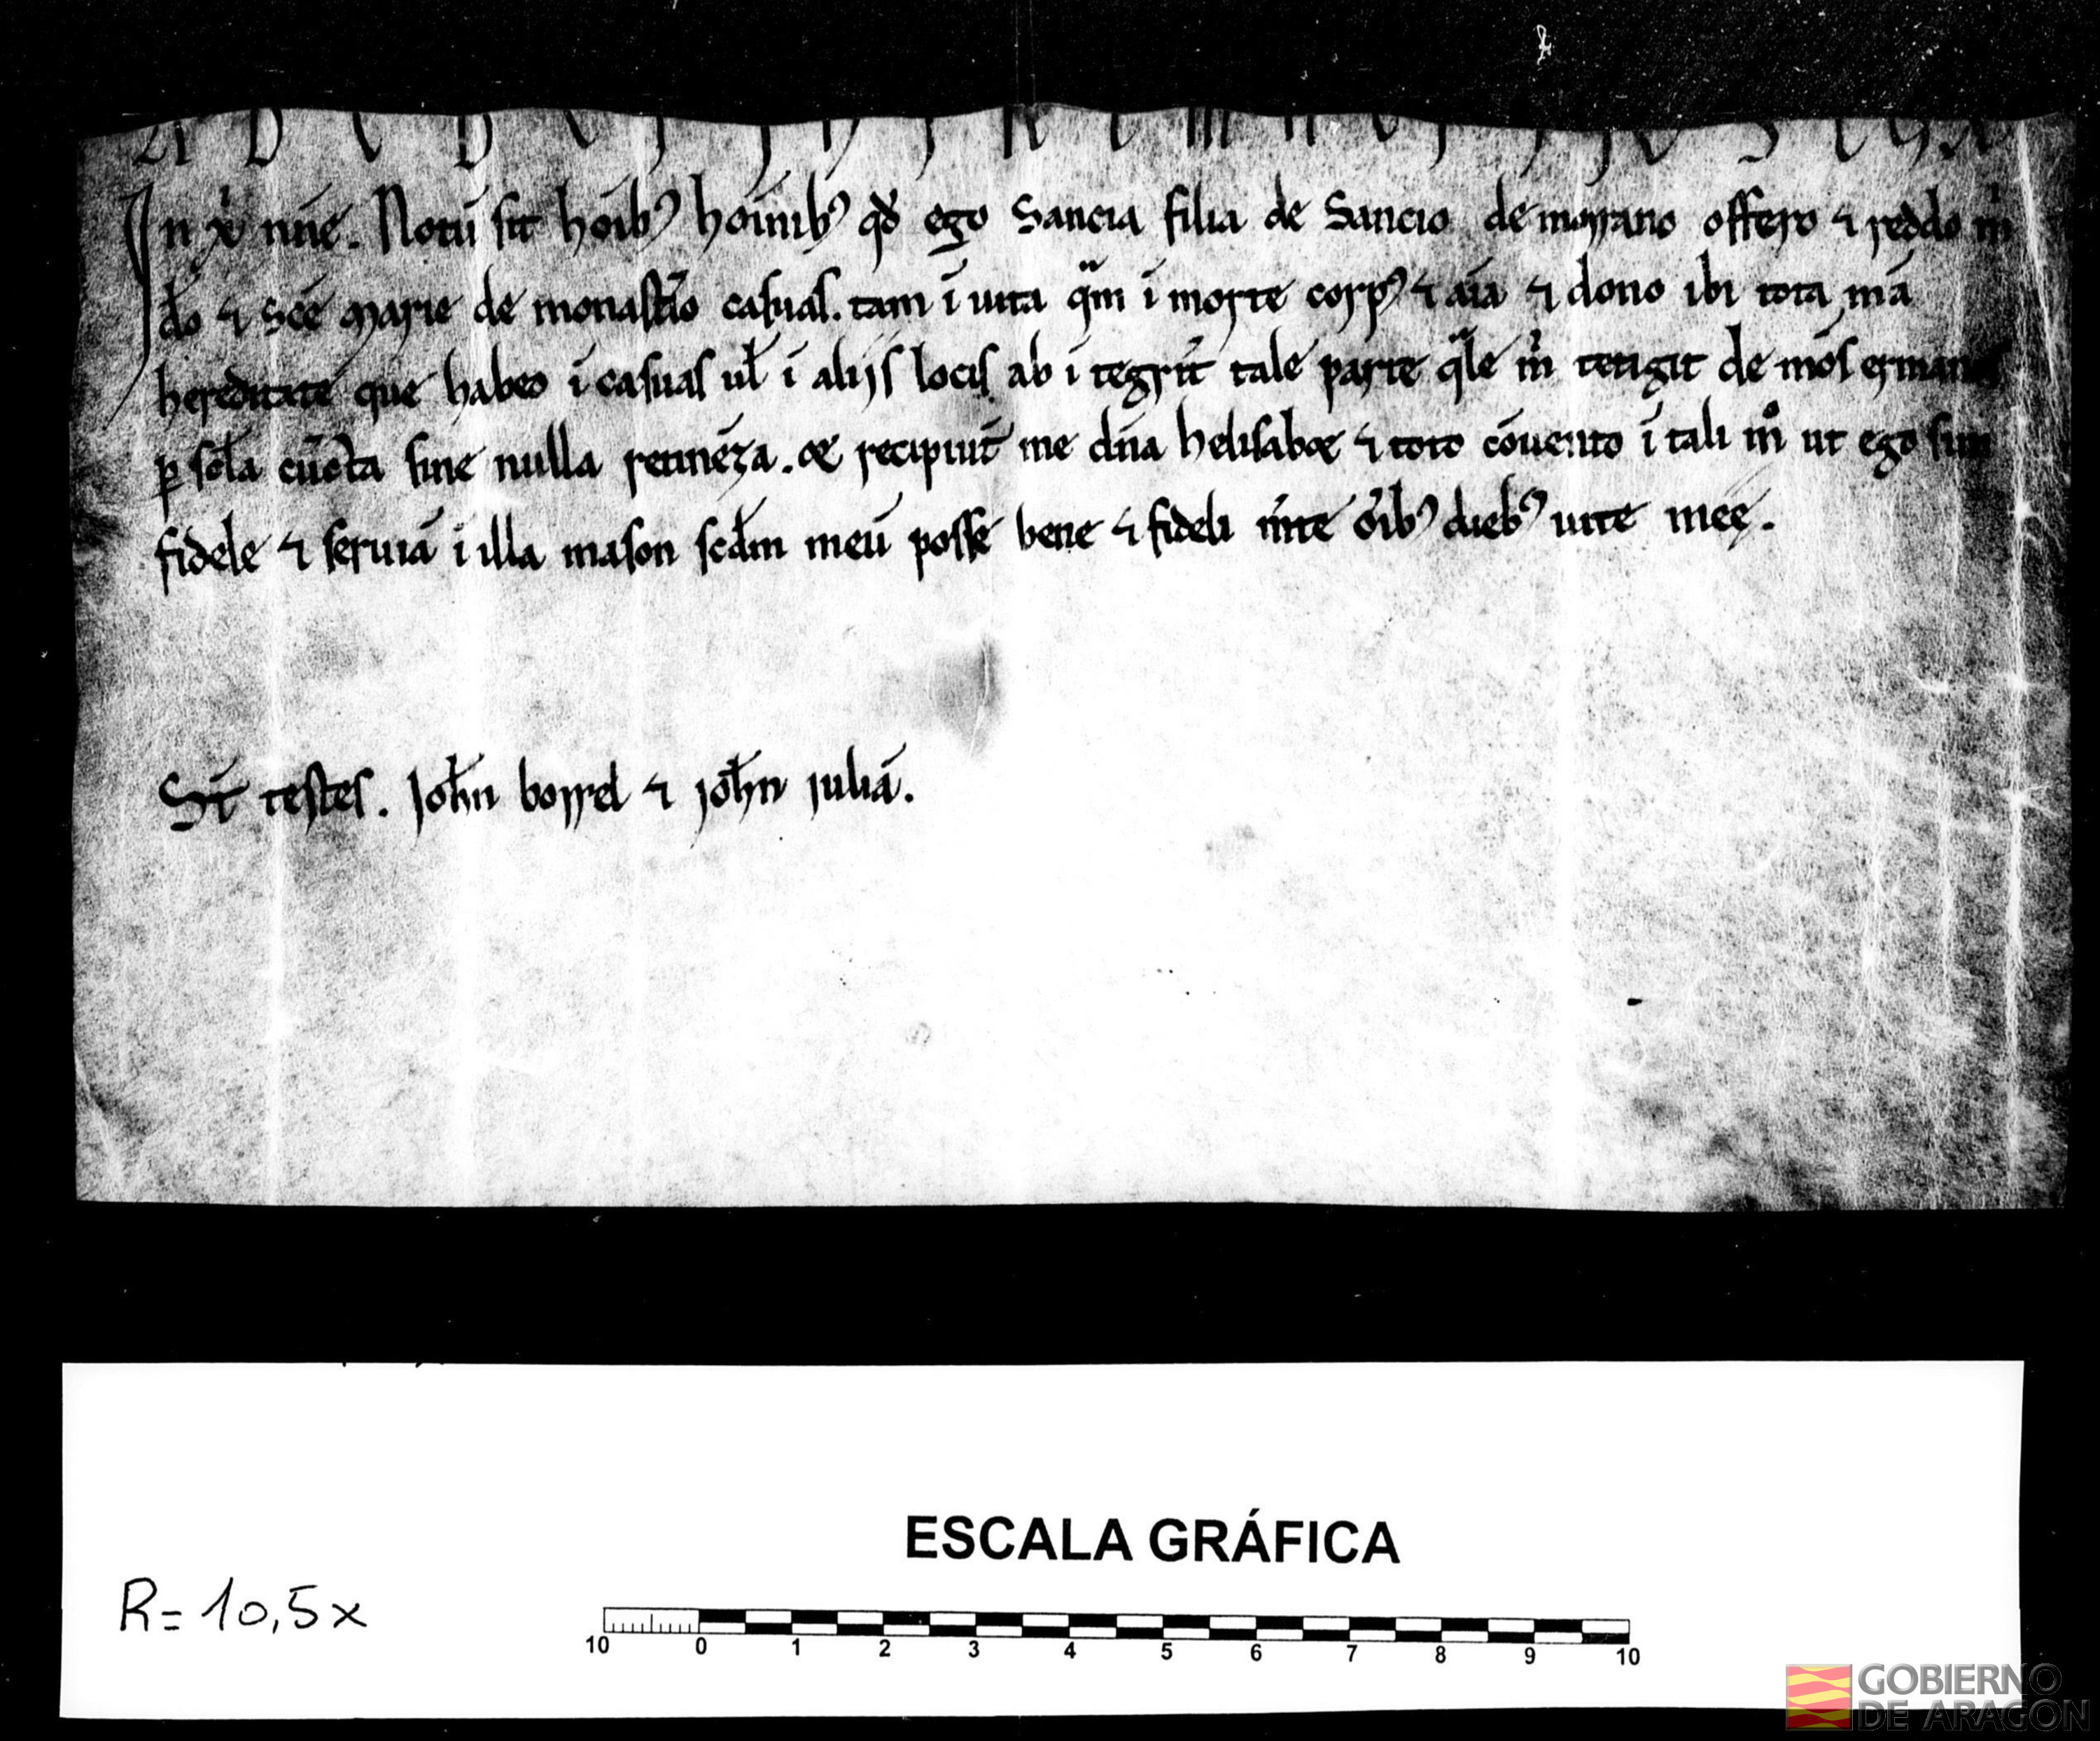 A B C D E F G H I K L M N O P Q R S T V X
In xp̄i nn̄e. Notū sit hoīb⁹ hoīnib⁹ qđ ego Sancia filia de Sancio de morrano offero ⁊ reddo m̄
dō ⁊ scē Marie de monastr̄io casuas. tam ī uita qm̄ ī morte corp⁹ ⁊ aīa ⁊ dono ibi tota mā
hereditate que habeo ī casuas ul̄ ī alijs locis ab ītegrit̄ tale parte qle m̄ tetigit de mōs ermanos
p scl̄a cūcta sine nulla retinēza. & recipiut̄ me dn̄a helisab& ⁊ toto cōuento ī tali mº ut ego sim
fidele ⁊ seruiā ī illa mason scdm̄ meū posse bene ⁊ fideli m̄te oīb⁹ dieb⁹ uite meę.
St̄ testes. Joh̄n borrel ⁊ joh̄n juliā.
ESCALA GRÁFICA
R=10,5x
10 0 1 2 3 4 5 6 7 8 9 10
GOBIERNO
DE ARAGON